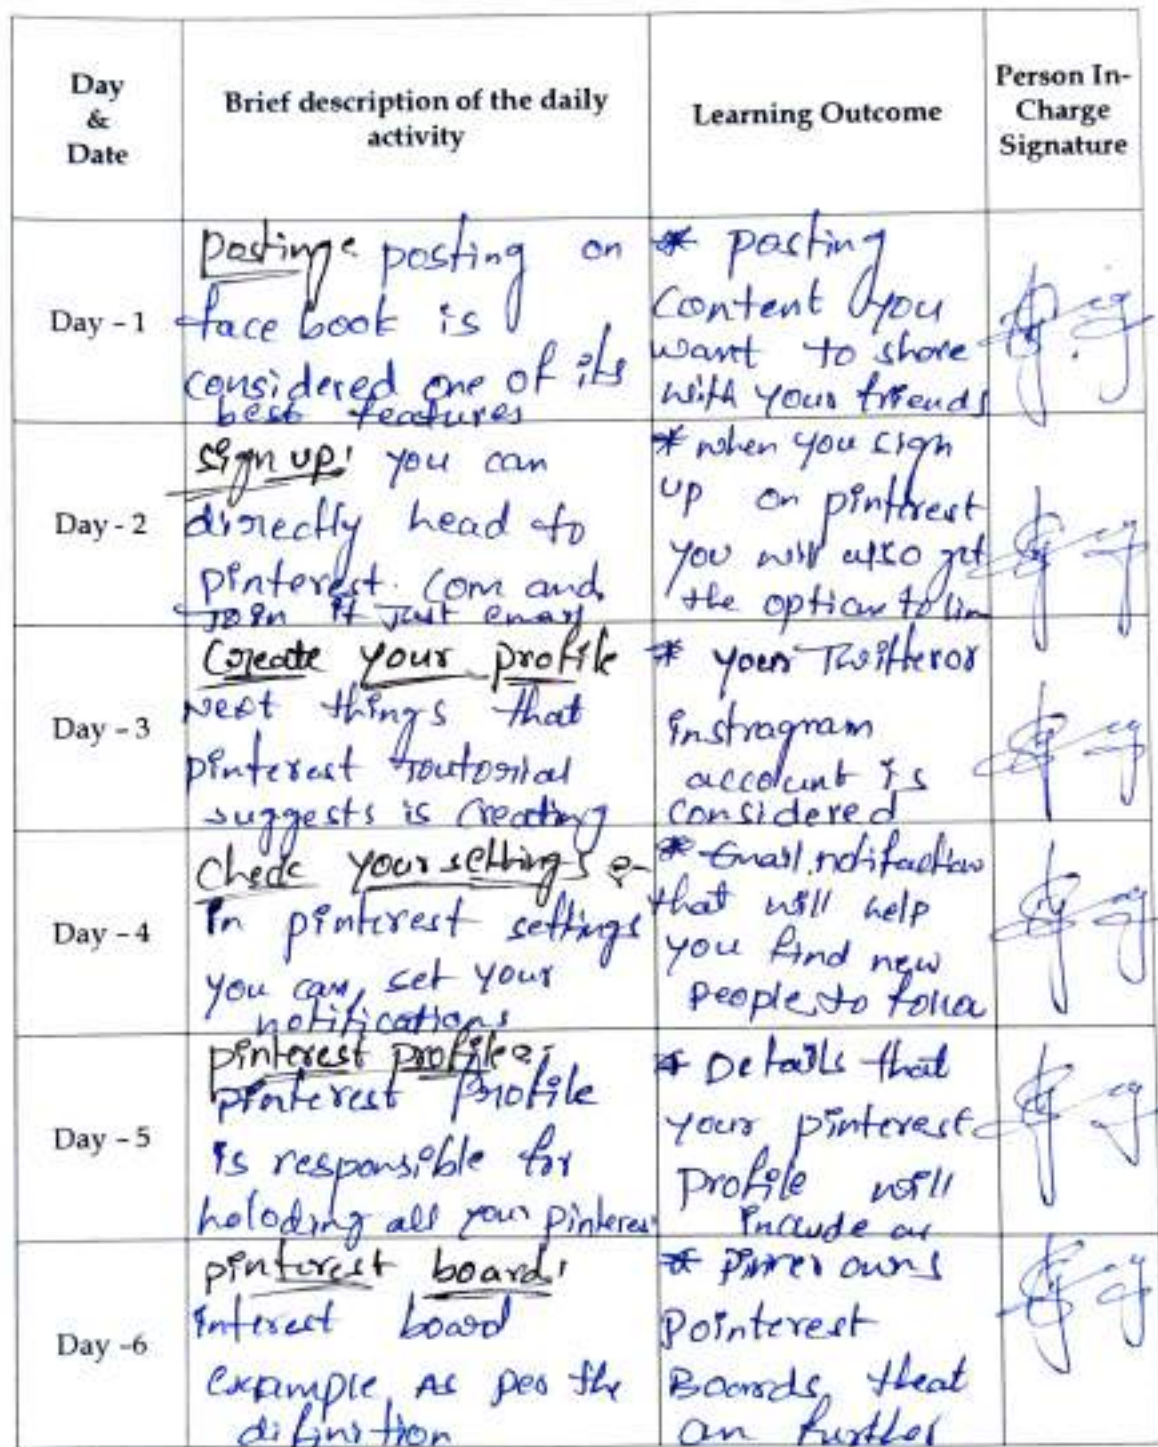 Day
&
Date
Brief description of the daily
activity
Learning Outcome
Person In-
Charge
Signature
Day - 1
Posting: posting on
face book is
considered one of its
best features
* posting
Content you
want to share
with your friends
Day - 2
Sign up: you can
directly head to
pinterest. com and
Join it Just
* when you sign
up on pintrest
you will also get
the option to lin
Day - 3
Create your profile
Next things that
pinterest toutorial
suggests is Creating
* your Twitteror
instragram
account is
considered
Day - 4
Check your settings :-
In pinterest settings
you can, set your
notifications
* Email,
that will help
you find new
people, to
Day - 5
pinterest profile:-
pinterest Profile
is responsible for
holoding all your pinteres
* Details that
your pinterest
profile will
include as
Day -6
pinterest board:
interest board
example, As per the
difinition
* pinner owns
Pointerest
Boards, that
an further